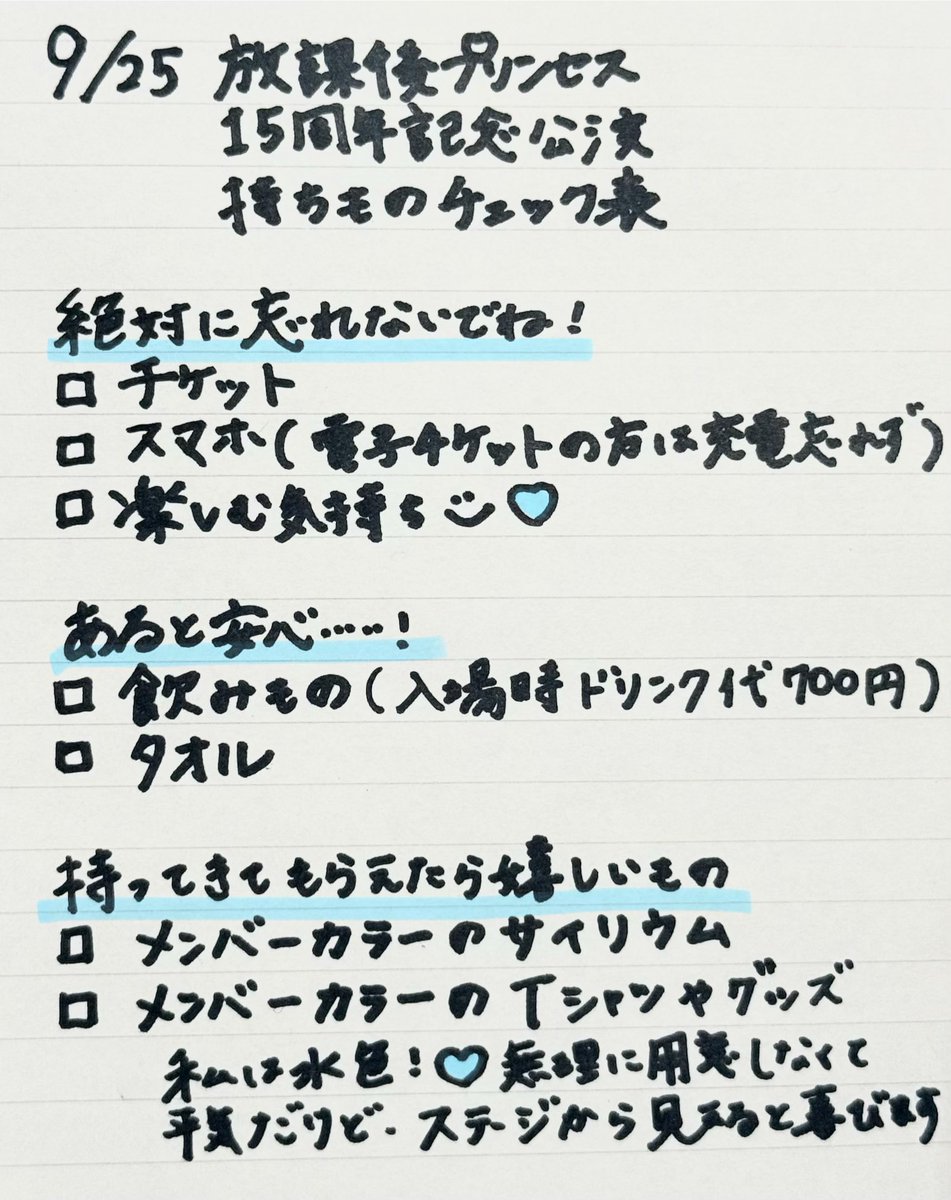 9/25 放課後プリンセス
15周年記念公演
持ちものチェック表
絶対に忘れないでね!
□ チケット
□ スマホ(電子チケットの方は充電忘れず)
□ 楽しむ気持ち
あると安心……!
□ 飲みもの(入場時ドリンク代700円)
□ タオル
持ってきてもらえたら嬉しいもの
□ メンバーカラーのサイリウム
□ メンバーカラーのTシャツやグッズ
私は水色! 無理に用意しなくて
平気だけど、ステージから見えると喜びます